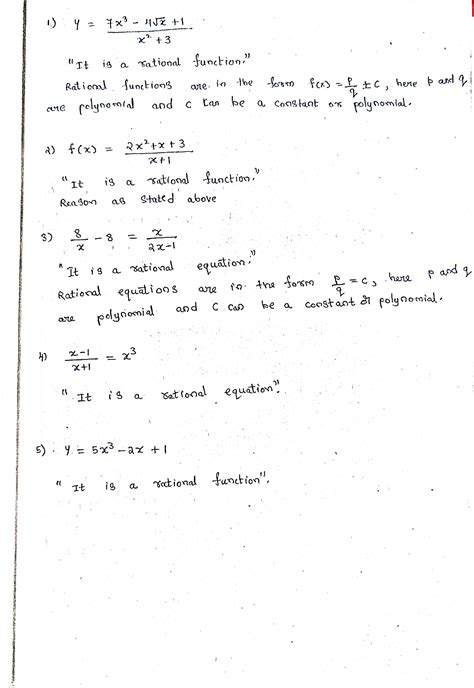 1) y = 7x³ - 4√x + 1 / x² + 3
"It is a rational function."
Rational functions are in the form f(x) = p/q ± c, here p and q
are polynomial and c can be a constant or polynomial.
2) f(x) = 2x² + x + 3 / x + 1
"It is a rational function."
Reason as stated above
3) 8/x - 8 = x / 2x-1
"It is a rational equation."
Rational equations are in the form p/q = c, here p and q
are polynomial and c can be a constant or polynomial.
4) x-1 / x+1 = x³
"It is a rational equation".
5) y = 5x³ - 2x + 1
"It is a rational function".